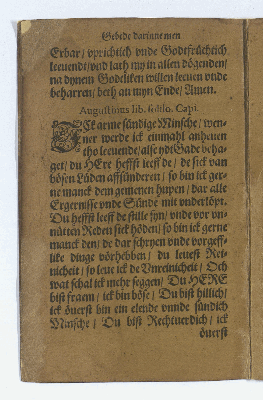 Gebede darinne men
Erbar/ vprichtich vnde Godtfrüchtich
leeuendt/ vnd lath my in allen dögenden/
na dynem Godeliken willen leeuen vnde
beharren/ beth an myn Ende/ Amen.
Augustinus lib. solilo. Capi.
ICk arme sündige Minsche/ wen-
ner werde ick einmahl anheuen
tho leeuende/ alse ydt Gade beha-
get/ du HEre heffst leeff de/ de sick van
bösen Lüden affsünderen/ so bin ick ger-
ne manck dem gemenen hupen/ dar alle
Ergernisse vnde Sünde mit vnderlöpt.
Du heffst leeff de stille syn/ vnde vor vn-
nütten Reden sick höden/ so bin ick gerne
manck den/ de dar schryen vnde vorgeff-
like dinge vörhebben/ du leuest Rei-
nicheit/ so leue ick de Vnreinicheit/ Och
wat schal ick mehr seggen/ Du HERE
bist fraem/ ick bin böse/ Du bist hillich/
ick öuerst bin ein elende vnnde sündich
Minsche/ Du bist Rechtuerdich/ ick
öuerst